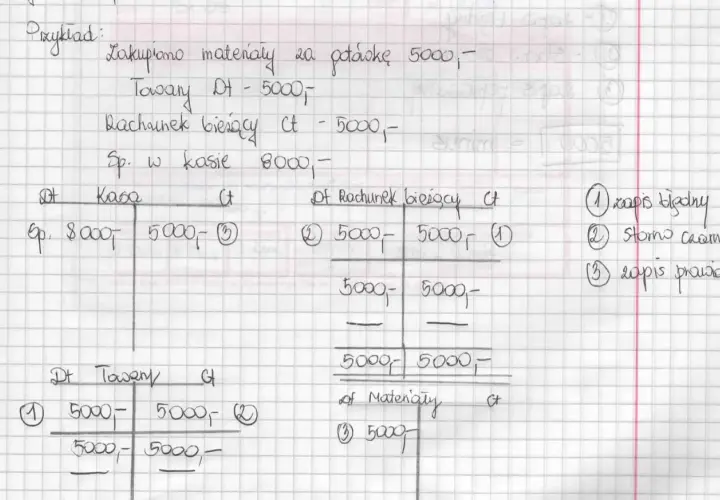 Przykład:
Zakupiono materiały za gotówkę 5000,-
Towary Dt - 5000,-
Rachunek bieżący Ct - 5000,-
Sp. w kasie 8000,-
Dt Kasa Ct
Sp. 8000,- 5000,- ③
Dt Rachunek bieżący Ct
② 5000,- 5000,- ①
5000,- 5000,-
5000,- 5000,-
① zapis błędny
② storno czarn
③ zapis prawid
Dt Towary Ct
① 5000,- 5000,- ②
5000,- 5000,-
Dt Materiały Ct
③ 5000,-